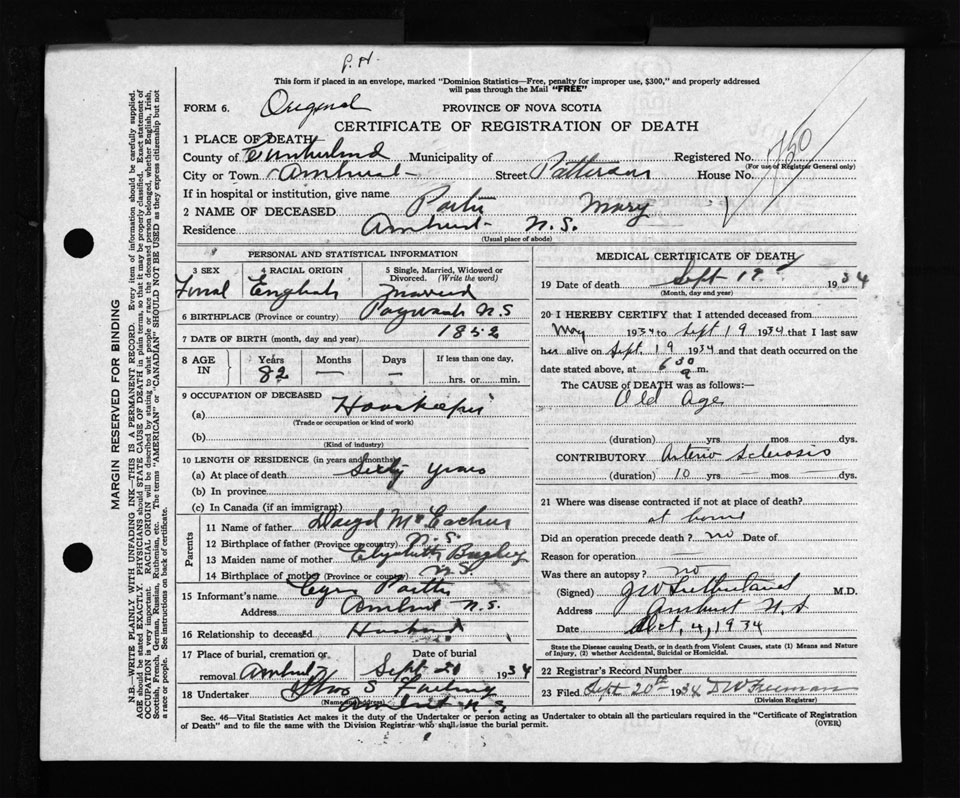 P. H.
This form if placed in an envelope, marked "Dominion Statistics—Free, penalty for improper use, $300," and properly addressed
will pass through the Mail "FREE"
FORM 6. Original PROVINCE OF NOVA SCOTIA
CERTIFICATE OF REGISTRATION OF DEATH
1 PLACE OF DEATH
County of Cumberland Municipality of Registered No. 750
(For use of Registrar General only)
City or Town Amherst Street Patterson House No.
If in hospital or institution, give name
2 NAME OF DECEASED Mary
Residence Amherst N.S.
(Usual place of abode)
PERSONAL AND STATISTICAL INFORMATION
3 SEX 4 RACIAL ORIGIN 5 Single, Married, Widowed or Divorced. (Write the word)
English Married
6 BIRTHPLACE (Province or country) Pugwash N.S
7 DATE OF BIRTH (month, day and year) 1852
8 AGE IN Years Months Days If less than one day,
82 — — hrs. or min.
9 OCCUPATION OF DECEASED
(a) Housekeeper
(Trade or occupation or kind of work)
(b)
(Kind of industry)
10 LENGTH OF RESIDENCE (in years and months)
(a) At place of death Sixty years
(b) In province
(c) In Canada (if an immigrant)
Parents
11 Name of father McEachern
12 Birthplace of father (Province or country) N.S.
13 Maiden name of mother Elizabeth
14 Birthplace of mother (Province or country) N.S.
15 Informant's name
Address Amherst N.S.
16 Relationship to deceased Husband
17 Place of burial, cremation or removal Amherst Date of burial Sept 20 1934
18 Undertaker S
(Name and address) Amherst N.S
MEDICAL CERTIFICATE OF DEATH
19 Date of death Sept 19 1934
(Month, day and year)
20 I HEREBY CERTIFY that I attended deceased from
May 1934 to Sept 19 1934 that I last saw
her alive on Sept. 19 1934 and that death occurred on the
date stated above, at 6 30 a m.
The CAUSE of DEATH was as follows:—
Old Age
(duration) yrs. mos. dys.
CONTRIBUTORY Arterio Sclerosis
(duration) 10 yrs. — mos. — dys.
21 Where was disease contracted if not at place of death?
at home
Did an operation precede death? no Date of
Reason for operation
Was there an autopsy? no
(Signed) J W Sutherland M.D.
Address Amherst N.S
Date Oct, 4, 1934
State the Disease causing Death, or in death from Violent Causes, state (1) Means and Nature of Injury, (2) whether Accidental, Suicidal or Homicidal.
22 Registrar's Record Number
23 Filed Sept 20th 1934 D W Freeman
(Division Registrar)
Sec. 46—Vital Statistics Act makes it the duty of the Undertaker or person acting as Undertaker to obtain all the particulars required in the "Certificate of Registration
of Death" and to file the same with the Division Registrar who shall issue the burial permit. (OVER)
MARGIN RESERVED FOR BINDING
N.B.—WRITE PLAINLY WITH UNFADING INK—THIS IS A PERMANENT RECORD. Every item of information should be carefully supplied.
AGE should be stated EXACTLY. PHYSICIANS should STATE CAUSE OF DEATH in plain terms, so that it may be properly classified. Exact statement of
OCCUPATION is very important. RACIAL ORIGIN will be described by stating to what people or race the deceased person belonged, whether English, Irish,
Scottish, French, German, Russian, Ruthenian, etc. The terms "AMERICAN" or "CANADIAN" SHOULD NOT BE USED as they express citizenship but not
a race or people. See instructions on back of certificate.